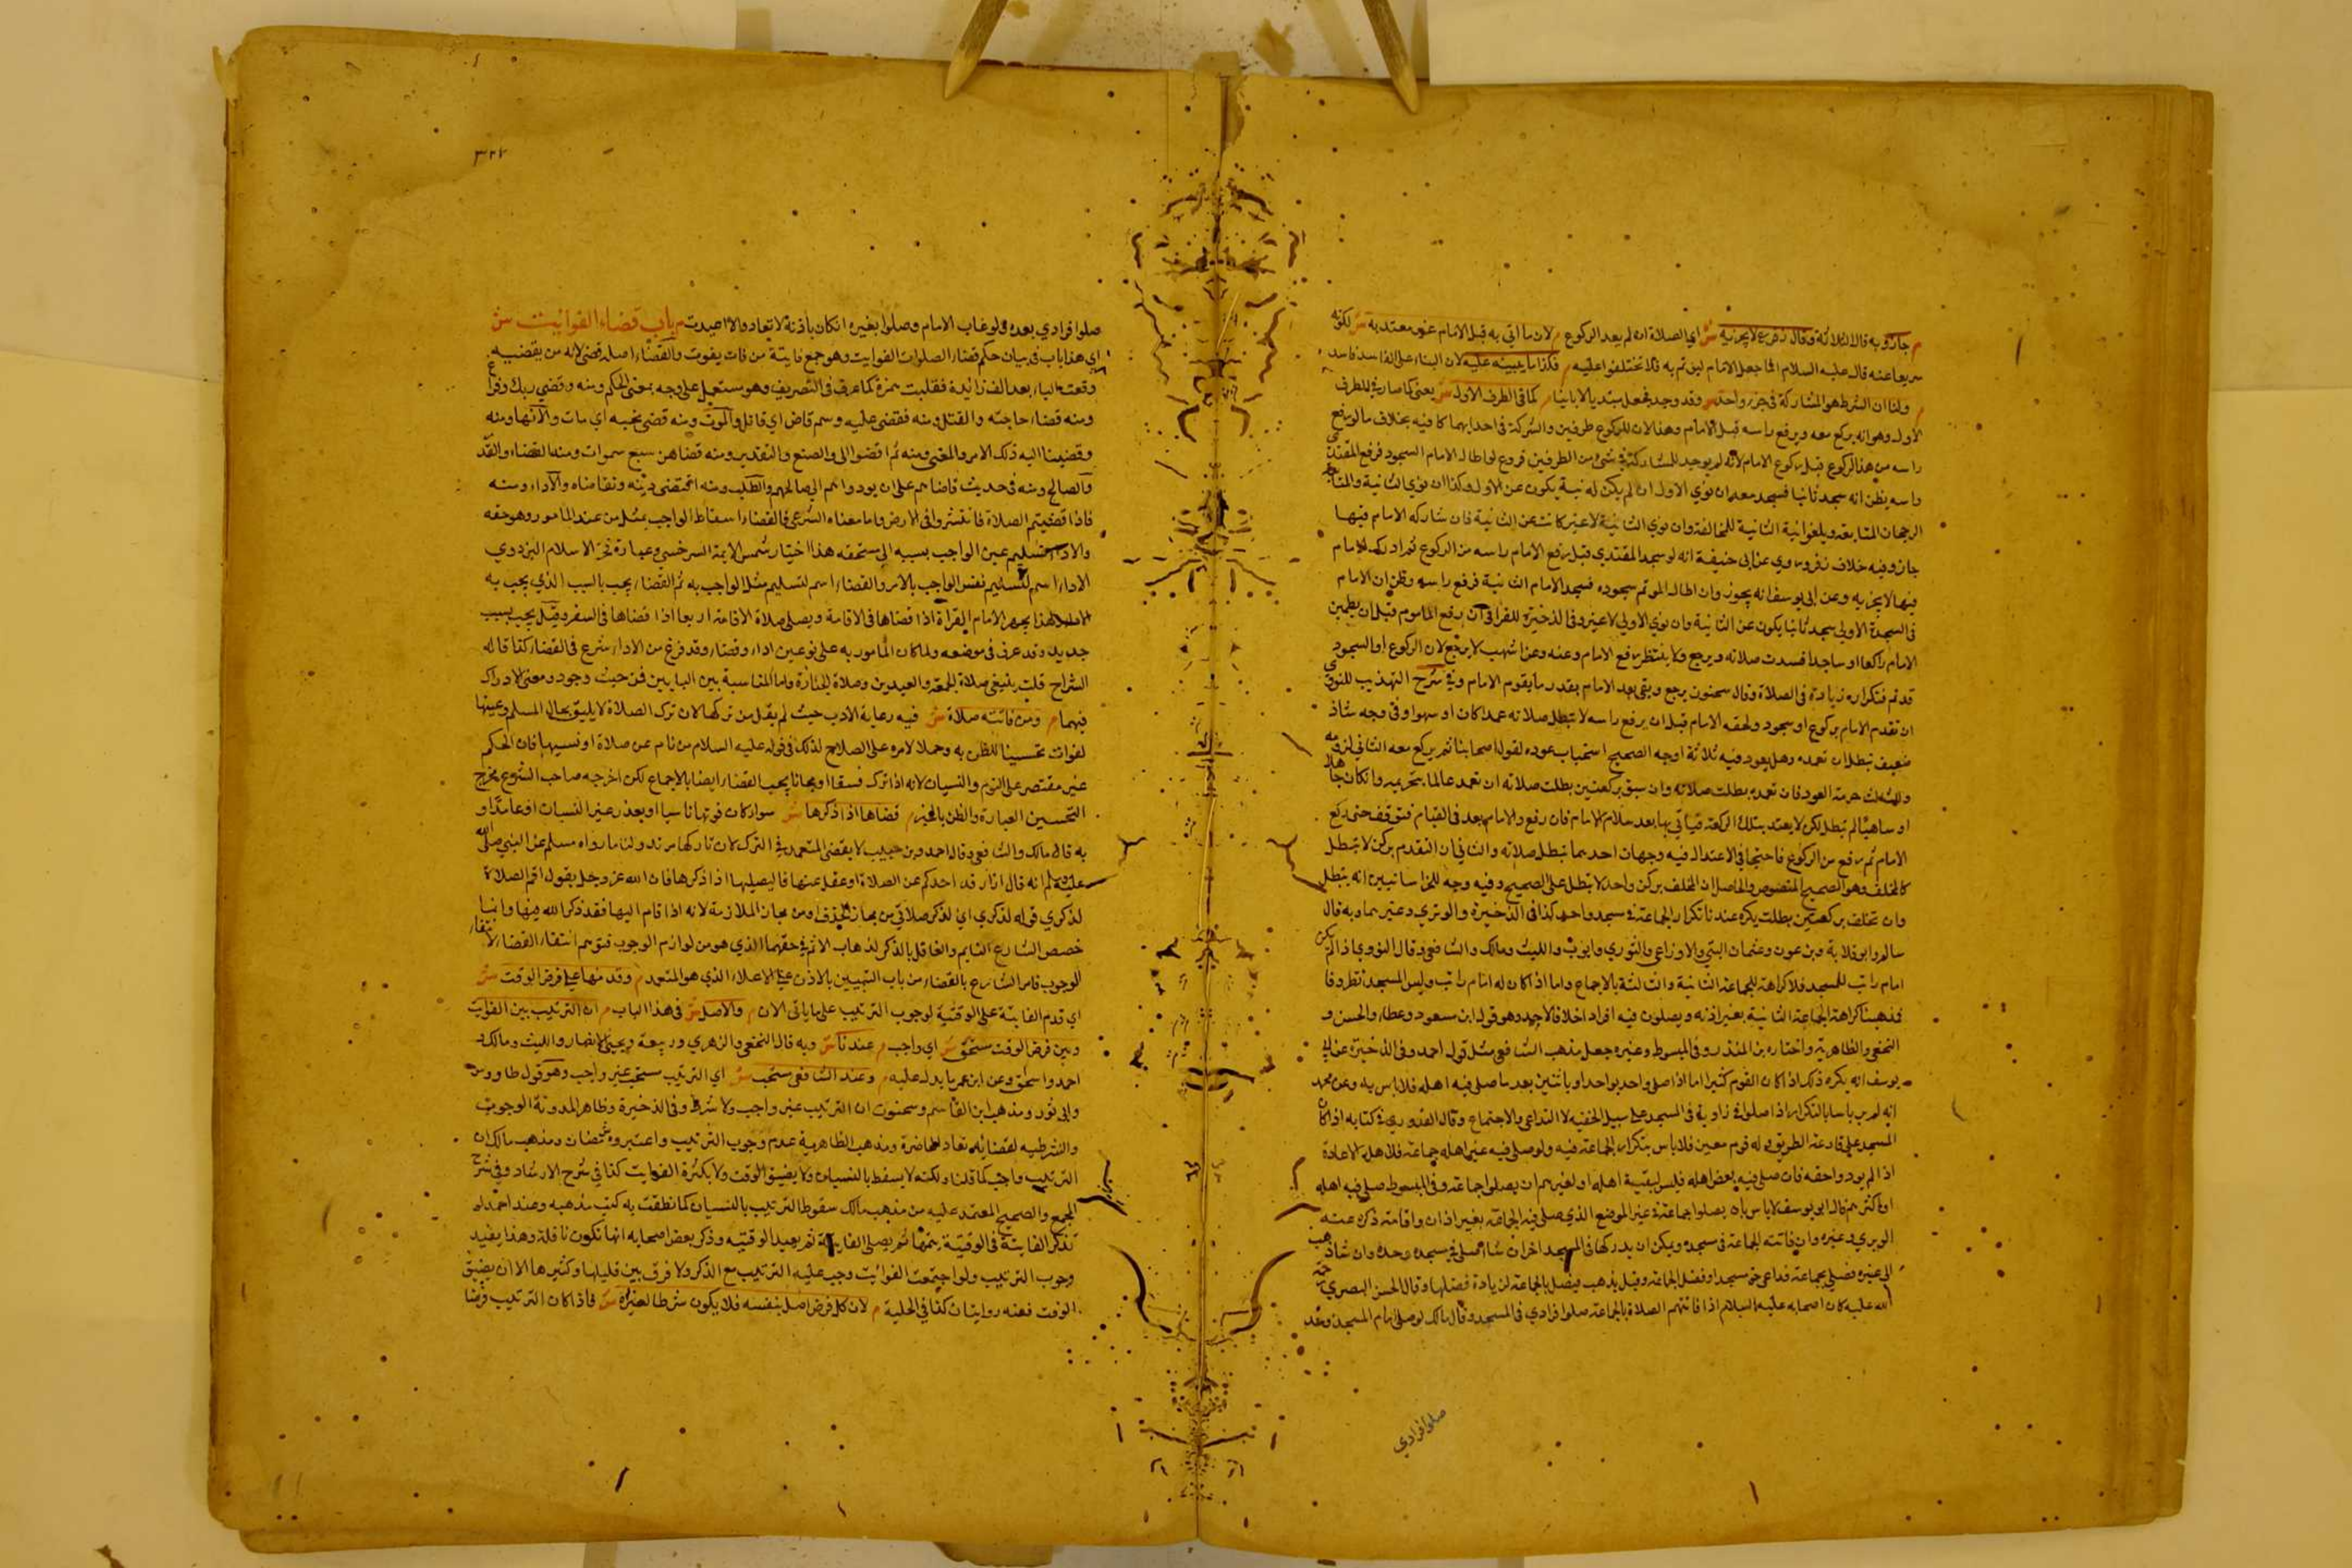 م جاز وبه قال الثلاثة وقال زفر لا يجزيه ش اي الصلاة ان لم يعد الركوع م لان ما اتي به قبل الامام غير معتد به ش لكونه
عنه قال عليه السلام انما جعل الامام ليؤتم به فلا تختلفوا عليه م فكذا ما يبنيه عليه لان البناء على الفاسد فاسد
م ولنا ان الشرط هو المشاركة في جزء واحد ش وقد وجد فيجعل مبتديا لا بانيا م كما في الطرف الاول ش يعني كما صار في الطرف
الاول وهو انه يركع معه ويرفع راسه قبل الامام وهذا لان للركوع طرفين والشركة في احدايهما كافية بخلاف ما لو رفع
راسه من هذا الركوع قبل ركوع الامام لانه لم يوجد المشاركة في شي من الطرفين فروع لو اطال الامام السجود فرفع المقتدي
راسه يظن انه سجد ثانيا فسجد معه ان نوي الاول او لم يكن له نية يكون عن الاول وكذا ان نوي الثانية والمتابعة
لرجحان المتابعة ويلغوا نية الثانية للمخالفة وان نوي الثانية لا غير كانت عن الثانية فان شاركه الامام فيها
جاز وفيه خلاف زفر وروي عن ابي حنيفة انه لو سجد المقتدي قبل رفع الامام راسه من الركوع ثم ادركه الامام
فيها لا يجزيه وعن ابي يوسف انه يجوز وان اطال الموتم سجوده فسجد الامام الثانية فرفع راسه وظن ان الامام
في السجدة الاولي سجد ثانيا يكون عن الثانية وان نوي الاولي لا غير وفي الذخيرة للقرافي ان رفع الماموم قبل ان يطمين
الامام راكعا او ساجدا فسدت صلاته ويرجع ولا ينتظر رفع الامام وعنه وعن اشهب لا يرجع لان الركوع او السجود
قد تم فتكراره زيادة في الصلاة وقال سحنون يرجع ويبقي بعد الامام بقدر ما يقوم الامام وفي شرح التهذيب للنووي
ان تقدم الامام بركوع او سجود ولحقه الامام قبل ان يرفع راسه لا تبطل صلاته عمدا كان او سهوا وفي وجه شاذ
ضعيف تبطل ان تعمده وهل يعود فيه ثلاثة اوجه الصحيح استحباب عوده لقول اصحابنا ثم يركع معه الثاني لزومه
والثالث حرمة العود فان تعمد بطلت صلاته وان سبق بركعتين بطلت صلاته ان تعمد عالما بتحريمه وان كان جاهلا
او ساهيا لم تبطل لكن لا يعتد بتلك الركعة فياتي بها بعد سلام الامام فان رفع والامام بعد في القيام فوقف حتى ركع
الامام ثم رفع من الركوع فاجتمعا في الاعتدال فيه وجهان احدهما تبطل صلاته والثاني ان التقدم بركن لا تبطل
كالتخلف وهو الصحيح المنصوص والحاصل ان التخلف بركن واحد لا تبطل على الصحيح وفيه وجه للخراسانيين انه يبطل
وان تخلف بركعتين بطلت يكره عندنا تكرار الجماعة في مسجد واحد كذا في الذخيرة والوتري وغيرهما وبه قال
سالم وابو قلابة وبن عون وعثمان البتي والاوزاعي والثوري وايوب والليث ومالك والشافعي وقال النووي اذا لم يكن
امام راتب للمسجد فلا كراهة للجماعة الثانية والثالثة بالاجماع واما اذا كان له امام راتب وليس المسجد
فمذهبنا كراهة الجماعة الثانية بغير اذنه ويصلون فيه افرادا خلافا لاحمد وهو قول ابن مسعود وعطاء والحسن و
النخعي والظاهرية واختاره بن المنذر وفي المبسوط وغيره جعل مذهب الشافعي مثل قول احمد وفي الذخيرة عن ابي
يوسف انه يكره ذلك اذا كان القوم كثيرا اما اذا صلي واحد بواحد او باثنين بعد ما صلي فيه اهله فلا باس به وعن محمد
انه لم ير باسا بالتكرار اذا صلوا في زاوية في المسجد على سبيل الخفيه لا التداعي والاجتماع وقال القدوري في كتابه اذا كان
المسجد على قارعة الطريق وله قوم معين فلا باس بتكرار الجماعة فيه ولو صلي فيه غير اهله جماعة فلاهله الاعادة
اذا لم يودوا حقه فان صلي فيه بعض اهله فليس لبقية اهله او لغيرهم ان يصلوا جماعة وفي المبسوط صلي فيه اهله
او اكثرهم قال ابو يوسف لا باس بان يصلوا جماعة في غير الموضع الذي صلي فيه الجماعة بغير اذان واقامة ذكره عنه
الوبري وغيره وان فاتته الجماعة في مسجده ويمكن ان يدركها في المسجد اخر ان شا صلي في مسجده وحده وان شا ذهب
الى غيره فصلي بجماعة فداعي حق مسجد او فضل الجماعة وقيل يذهب فيصلي بالجماعة لزيادة فضلها وقال الحسن البصري رحمة
الله عليه كان اصحابه عليه السلام اذا فاتتهم الصلاة بالجماعة صلوا فرادي في المسجد وقال مالك لو صلى امام المسجد وحده
صلوا فرادي
٣٢٧
صلوا فرادي بعده ولو غاب الامام وصلوا بغيره ان كان باذنه لا تعاد والا اعيدت م باب قضاء الفوائيت ش
اي هذا باب في بيان حكم قضاء الصلوات الفوايت وهو جمع فايتة من فات يفوت والقضاء اصله قضى لانه من يقضيه
وقعت الياء بعد الف زائدة فقلبت همزة كما عرف في التصريف وهو يستعمل على وجه بمعنى الحكم ومنه وقضي ربك وفراغ
ومنه قضاء حاجته والقتل ومنه فقضى عليه وسم قاض اي قاتل والموت ومنه قضى نحبه اي مات والانها ومنه
وقضينا اليه ذلك الامر والمعني ومنه ثم اقضوا الى والصنع والتقدير ومنه فقضاهن سبع سموات ومنه القضاء والقدر
والصالح ومنه في حديث قاضاهم على ان يودوا اي صالحهم والطلب ومنه اقتضى دينه وتقاضاه والاداء ومنه
فاذا قضيتم الصلاة فانتشروا في الارض واما معناه الشرعي فالقضاء اسقاط الواجب بمثل من عند المامور وهو حقه
والاداء تسليم عين الواجب بسببه الى مستحقه هذا اختيار شمس الايمة السرخسي وعبارة فخر الاسلام البزدوي
الاداء اسم لتسليم نفس الواجب بالامر والقضاء اسم لتسليم مثل الواجب به ثم القضاء يجب بالسبب الذي يجب به
الاداء ولهذا يجهر الامام القراة اذا قضاها في الاقامة ويصلي صلاة الاقامة اربعا اذا قضاها في السفر وقيل يجب بسبب
جديد وقد عرف في موضعه ولما كان المامور به على نوعين اداء وقضاء وقد فرغ من الاداء شرع في القضاء كذا قاله
الشراح قلت بقي صلاة الجمعة والعيدين وصلاة الجنازة واما المناسبة بين البابين فمن حيث وجود ومعنى الادراك
فيهما م ومن فاتته صلاة ش فيه رعاية الادب حيث لم يقل من تركها لان ترك الصلاة لا يليق بحال المسلم وعينها
لفوات تحسينا للظن به وحملا لامره على الصلاح لذلك في قوله عليه السلام من نام عن صلاة او نسيها فان الحكم
غير مقتصر على النوم والنسيان لانه اذا ترك فسقا او مجانا يجب القضاء ايضا بالاجماع لكن اخرجه صاحب الشرع مخرج
التحسين العبارة والظن بالخير م قضاها اذا ذكرها ش سواء كان فوتها ناسيا او بعذر غير النسيان او عامدا و
به قال مالك والشافعي وقال احمد وبن حبيب لا يقضي المتعمد في الترك لان تاركها مرتد ولنا ما رواه مسلم عن النبي صلى الله
عليه وسلم انه قال اذا رقد احدكم عن الصلاة او غفل عنها فليصليها اذا ذكرها فان الله عز وجل يقول اقم الصلاة
لذكري قوله لذكري اي لذكر صلاتي من مجاز الحذف او من مجاز الملازمة لانه اذا قام اليها فقد ذكر الله فيها وانما
خصص الشارع النايم والغافل بالذكر لذهاب الاثم في حقهما الذي هو من لوازم الوجوب فتوهم انتفاء القضاء لانتفاء
الوجوب فامر الشارع بالقضاء من باب التنبيه بالادنى على الاعلاء الذي هو المتعمد م وقدمها على فرض الوقت ش
اي قدم الفايتة على الوقتية لوجوب الترتيب على ما ياتي الان م والاصل ش في هذا الباب م ان الترتيب بين الفوايت
وبين فرض الوقت مستحق ش اي واجب م عندنا ش وبه قال النخعي والزهري وربيعة ويحيى الانصار والليث ومالك و
احمد واسحق وعن ابن عمر ما يدل عليه م وعند الشافعي مستحب ش اي الترتيب مستحب غير واجب وهو قول طاووس
وابي ثور ومذهب ابن القاسم وسحنون ان الترتيب غير واجب ولا شرط وفي الذخيرة وظاهر المدونة الوجوب
والشرطيه لقضائه تعاد الحاضرة ومذهب الظاهرية عدم وجوب الترتيب واعتبروه برمضان ومذهب مالك ان
الترتيب واجب كما قلنا ولكنه لا يسقط بالنسيان ولا بضيق الوقت ولا بكثرة الفوايت كذا في شرح الارشاد وفي شرح
المجمع والصحيح المعتمد عليه من مذهب مالك سقوط الترتيب بالنسيان كما نطقت به كتب مذهبه وعند احمد لو
تذكر الفايتة في الوقتية يتمها ثم يصلي الفايتة ثم يعيد الوقتيه وذكر بعض اصحابه انها تكون نافلة وهذا يفيد
وجوب الترتيب ولو اجتمعت الفوائت وجب عليه الترتيب مع الذكر ولا فرق بين قليلها وكثيرها الا ان يضيق
الوقت فعنه روايتان كذا في الحلية م لان كل فرض اصل بنفسه فلا يكون شرطا لغيره ش فاذا كان الترتيب فرضا